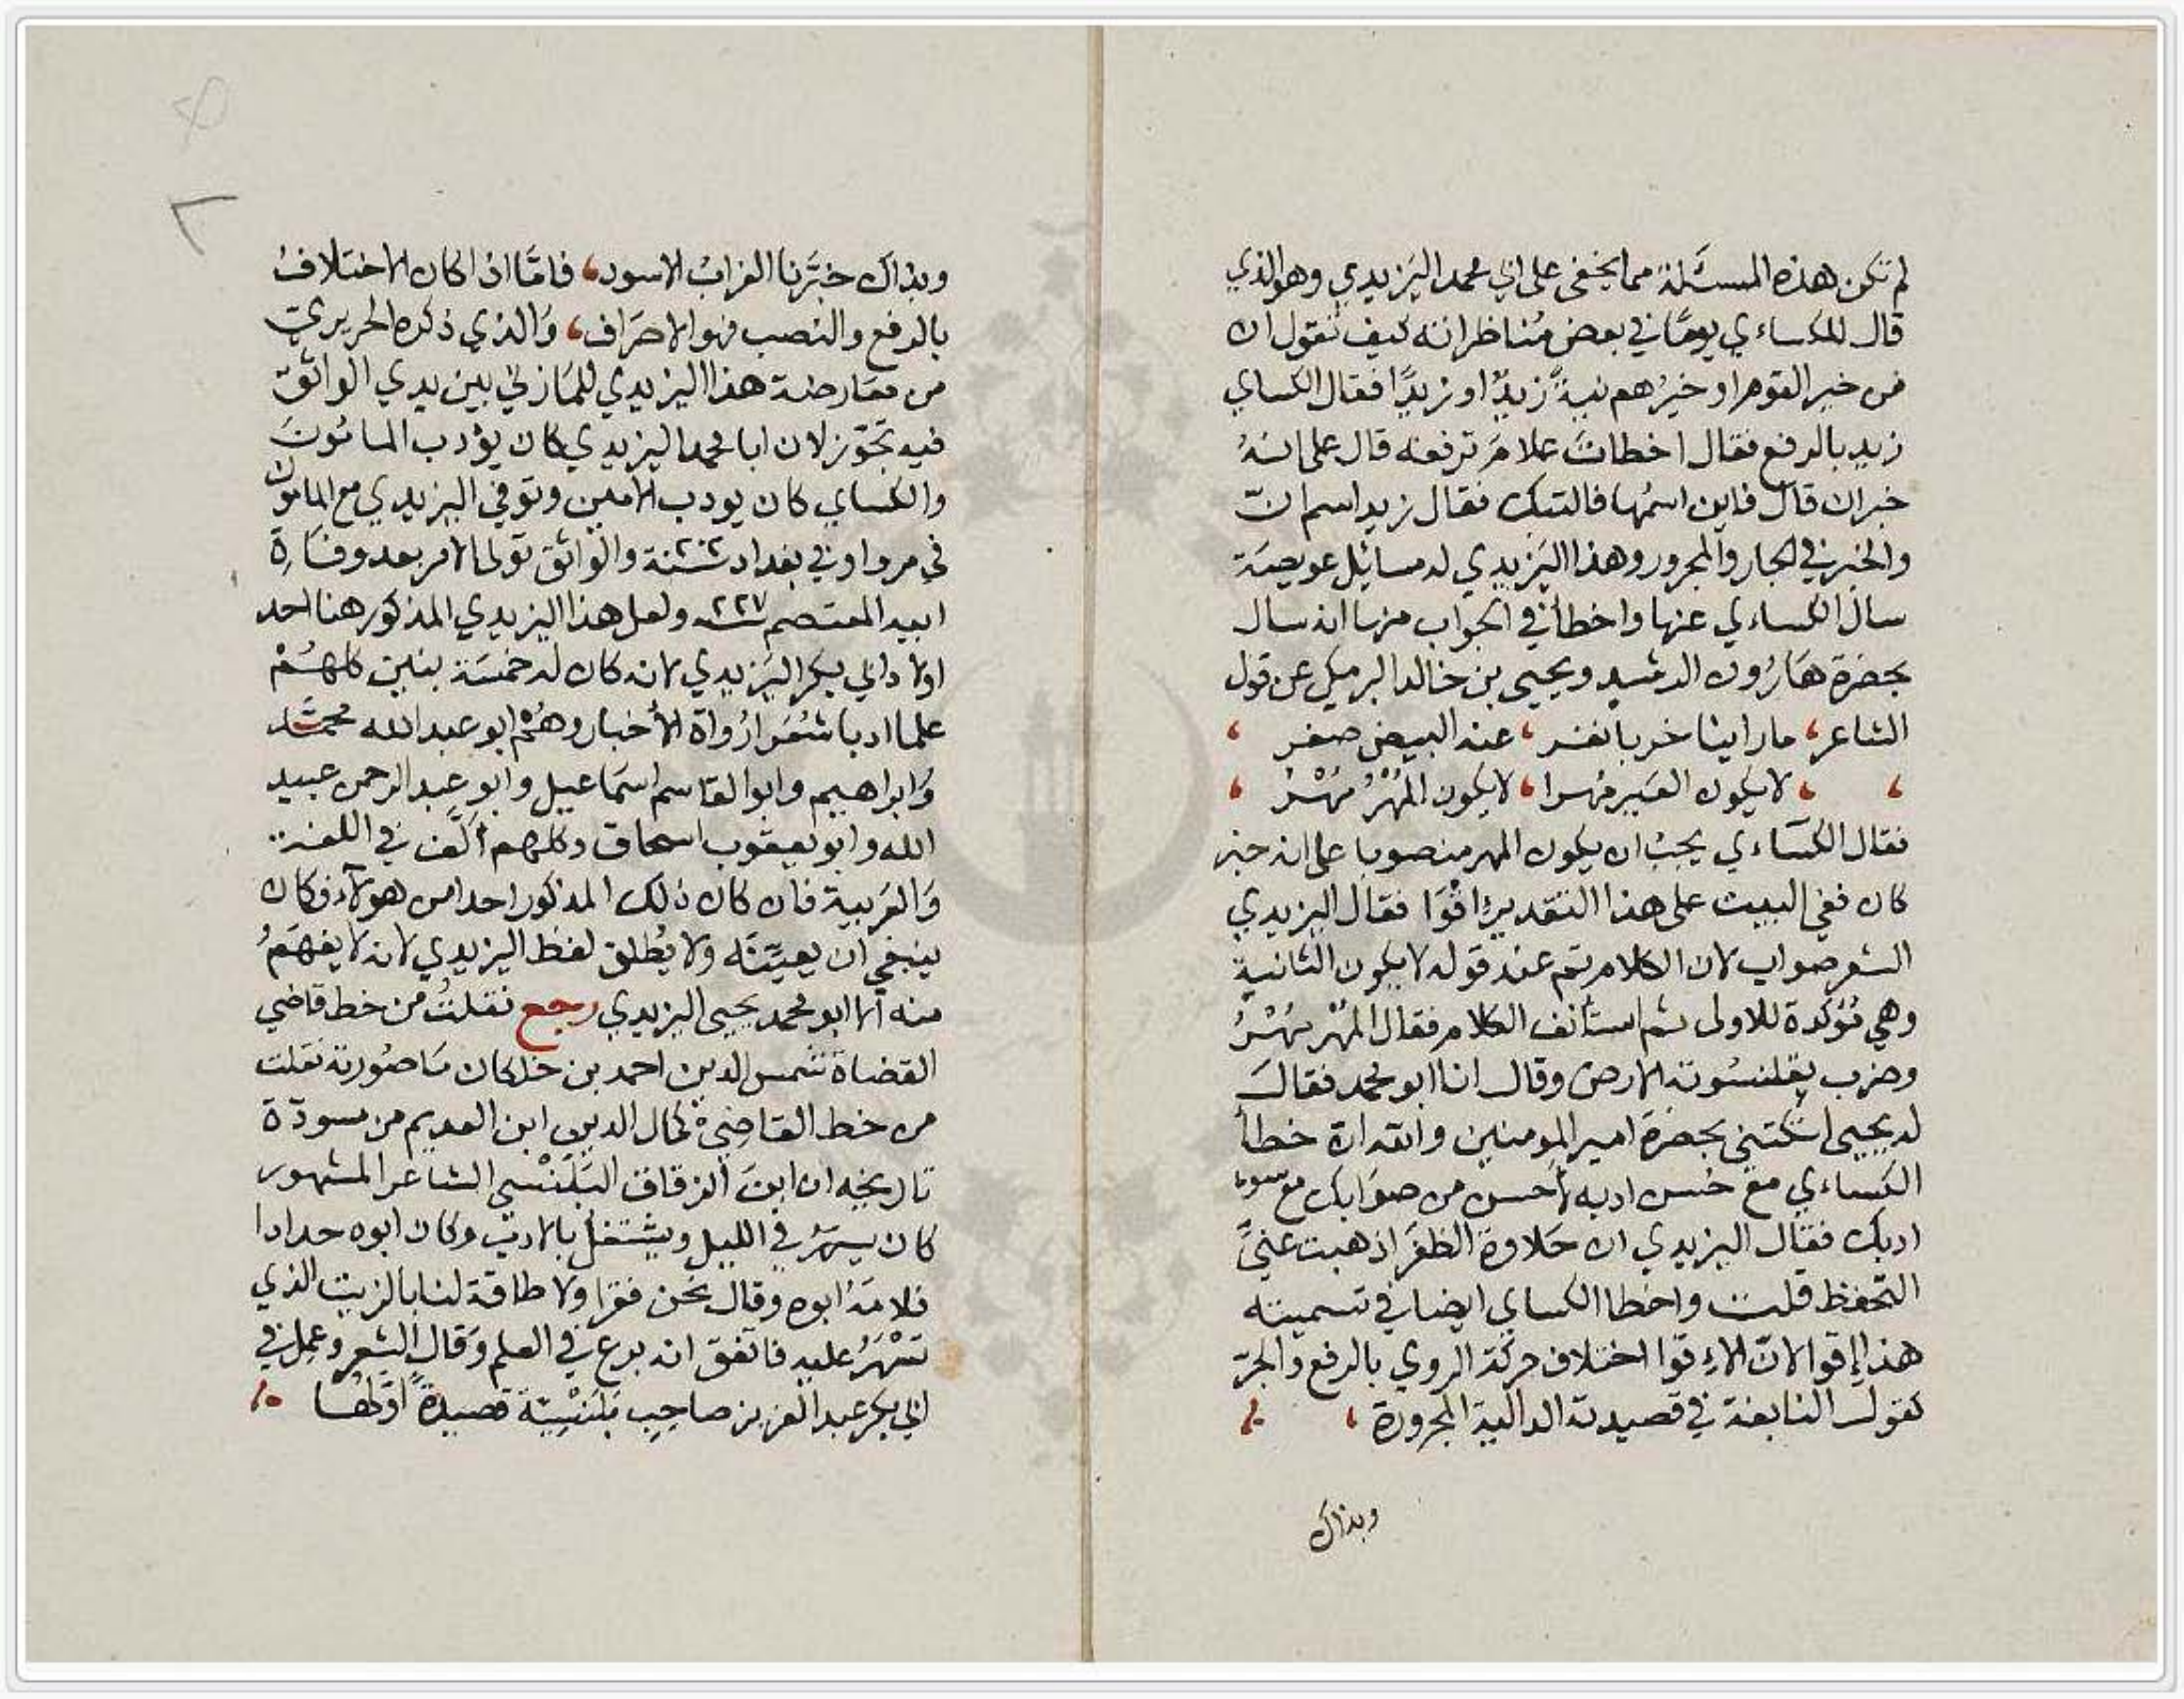 لم تكن هذه المسئلة مما يخفى على ابي محمد اليزيدي وهو الذي
قال للكساءي يومًا في بعض مُناظراته كيف تقول ان
من خير القوم او خيرُهم نيةً زيدٌ او زيدًا فقال الكساي
زيد بالرفع فقال اخطات علامَ ترفعه قال على انهُ
خبر ان قال فاين اسمُها فالتبك فقال زيد اسم انّ
والخبر في الجار والمجرور وهذا اليَزيدي له مسائل عويصَة
سال الكساءي عنها واخطأ في الجواب منها انه سال
بحضرة هَارُون الرشيد ويحيى بن خالد البرمكي عن قول
الشاعر، ما راينا خربا نفر، عنه البيض صقر ،
، ، لا يكون العَير مُهرا، لا يكون المُهْرُ مُهْرُ ،
فقال الكسَاءي يجبُ ان يكون المهر منصوبا على انه خبر
كان ففي البيت على هذا التقدير اقْوَا فقال اليزيدي
الشعر صواب لان الكلام تم عند قوله لا يكون الثانية
وهي مُؤكدة للاولى ثم استأنف الكلام فقال المُهْر مُهْرُ
وضرب بقلنسُوته الارض وقال انا ابو محمد فقالَ
له يحيى اتكتني بحضرة امير المومنين والله ان خطأ
الكساءي مع حُسن ادبه لأحسن من صوَابك مع سوء
ادبك فقال اليزيدي ان حَلاوة الظفَر اذهبت عنيّ
التحفظ قلت واخطا الكساي ايضا في تسميته
هذا إقوا لانّ الاِقوا اختلاف حركَة الروي بالرفع والجرّ
كقول النابغة في قصيدته الدالية المجرورة ،
وبذاك
وبذاك خبَّرنا الغرابُ الاسود، فامَّا اذا كان الاختلافُ
بالرفع والنصب فهو الاصَراف، وَالذي ذكره الحريريّ
من معَارضة هذا اليزيدي للمَازنيّ بين يدي الواثق
فيه تجَوّز لان ابا محمد اليزيدي كان يؤدب المامُونَ
والكساي كان يودب الامين وتوفي اليزيدي مع المامون
في مرو او في بغداد ٢٠٢ سنة والوَاثق تولى الامر بعد وفَاة
ابيه المعتصم ٢٢٧ ولعل هذا اليزيدي المذكور هنا احد
اولاد ابي بكر اليَزيدي لانه كان له خمسَة بنين كلهُمْ
علما ادبا شُعَرا رُواة الأخبار وهُمْ ابو عبد الله محمَّد
وَابراهيم وابو القاسم اسمَاعيل وابو عبد الرحمن عبيد
الله وابو يعقوب اسحاق وكلهم ألَّف في اللغة
وَالعَربية فان كان ذلك المذكور احدا من هولآء فكان
ينبغي ان يعيّنَه ولا يُطلق لفظ اليزيدي لانه لا يفهَمُ
منه الا ابو محمد يحيى اليزيدي رجع نقلتُ من خط قاضي
القضاة شمس الدين احمد بن خلكان مَا صُورته نقلت
من خط القاضي كمال الدين ابن العديم من مسودّة
تاريخه ان ابن الزقاق البَلَنْسي الشاعر المشهور
كان يسهَرُ في الليل ويشتغلُ بالادب وكان ابوه حدادا
فلامَهُ ابوه وقال نحن فقرا ولا طاقة لنا بالزيت الذي
تَسْهَرُ عليه فاتفق انه برع في العلم وَقال الشعر وعمل في
ابي بكر عبد العزيز صاحِبِ بَلَنْسِيّة قصيدةً اوّلهَا